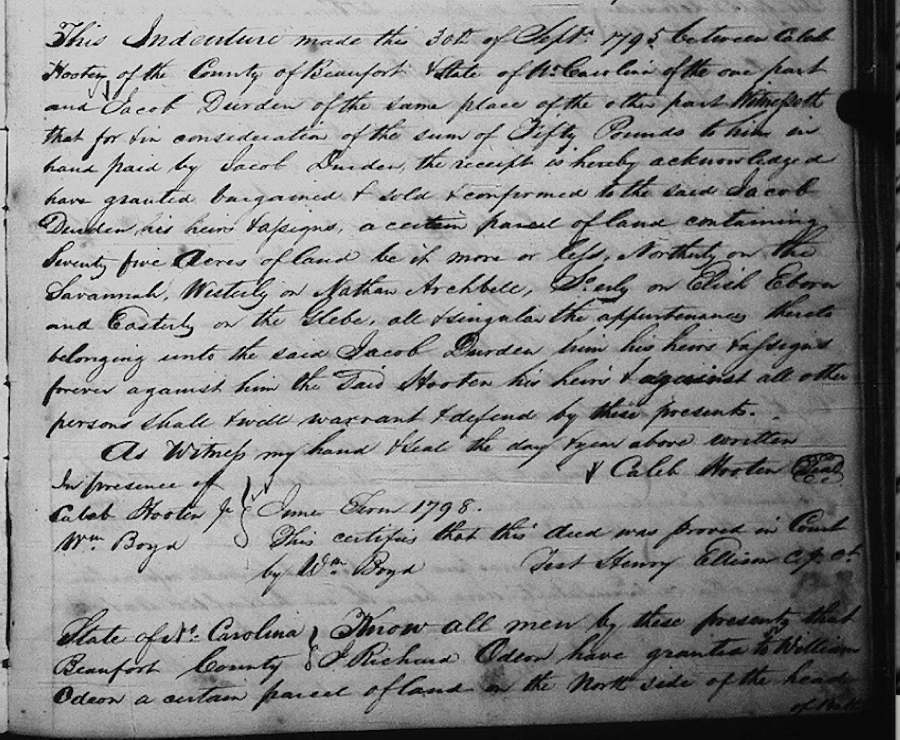 This Indenture made this 30th of Sept. 1795 between Caleb
Hooten of the County of Beaufort & State of No. Carolina of the one part
and Jacob Durden of the same place of the other part Witnesseth
that for & in consideration of the sum of Fifty Pounds to him in
hand paid by Jacob Durden, the receipt is hereby acknowledged
have granted bargained & sold & confirmed to the said Jacob
Durden, his heirs & assigns, a certain parcel of land containing
Seventy five Acres of land be it more or less, Northerly on the
Savannah, Westerly on Nathan Archbell, So.erly on Elish Eborn
and Easterly on the Glebe, all & singular the appurtenances thereto
belonging unto the said Jacob Durden him his heirs & assigns
forever against him the Said Hooten his heirs & against all other
persons shall & will warrant & defend by these presents.
As Witness my hand & Seal the day & year above written
Caleb Hooten Seal
In presence of
Caleb Hooten Jr
Wm. Boyd
June Term 1798.
This certifies that this deed was proved in Court
by Wm. Boyd Test Henry Ellison C.p. Ct.
State of No. Carolina
Beaufort County
Know all men by these presents that
I Richard Odeon have granted to William
Odeon a certain parcel of land on the North side of the head
of